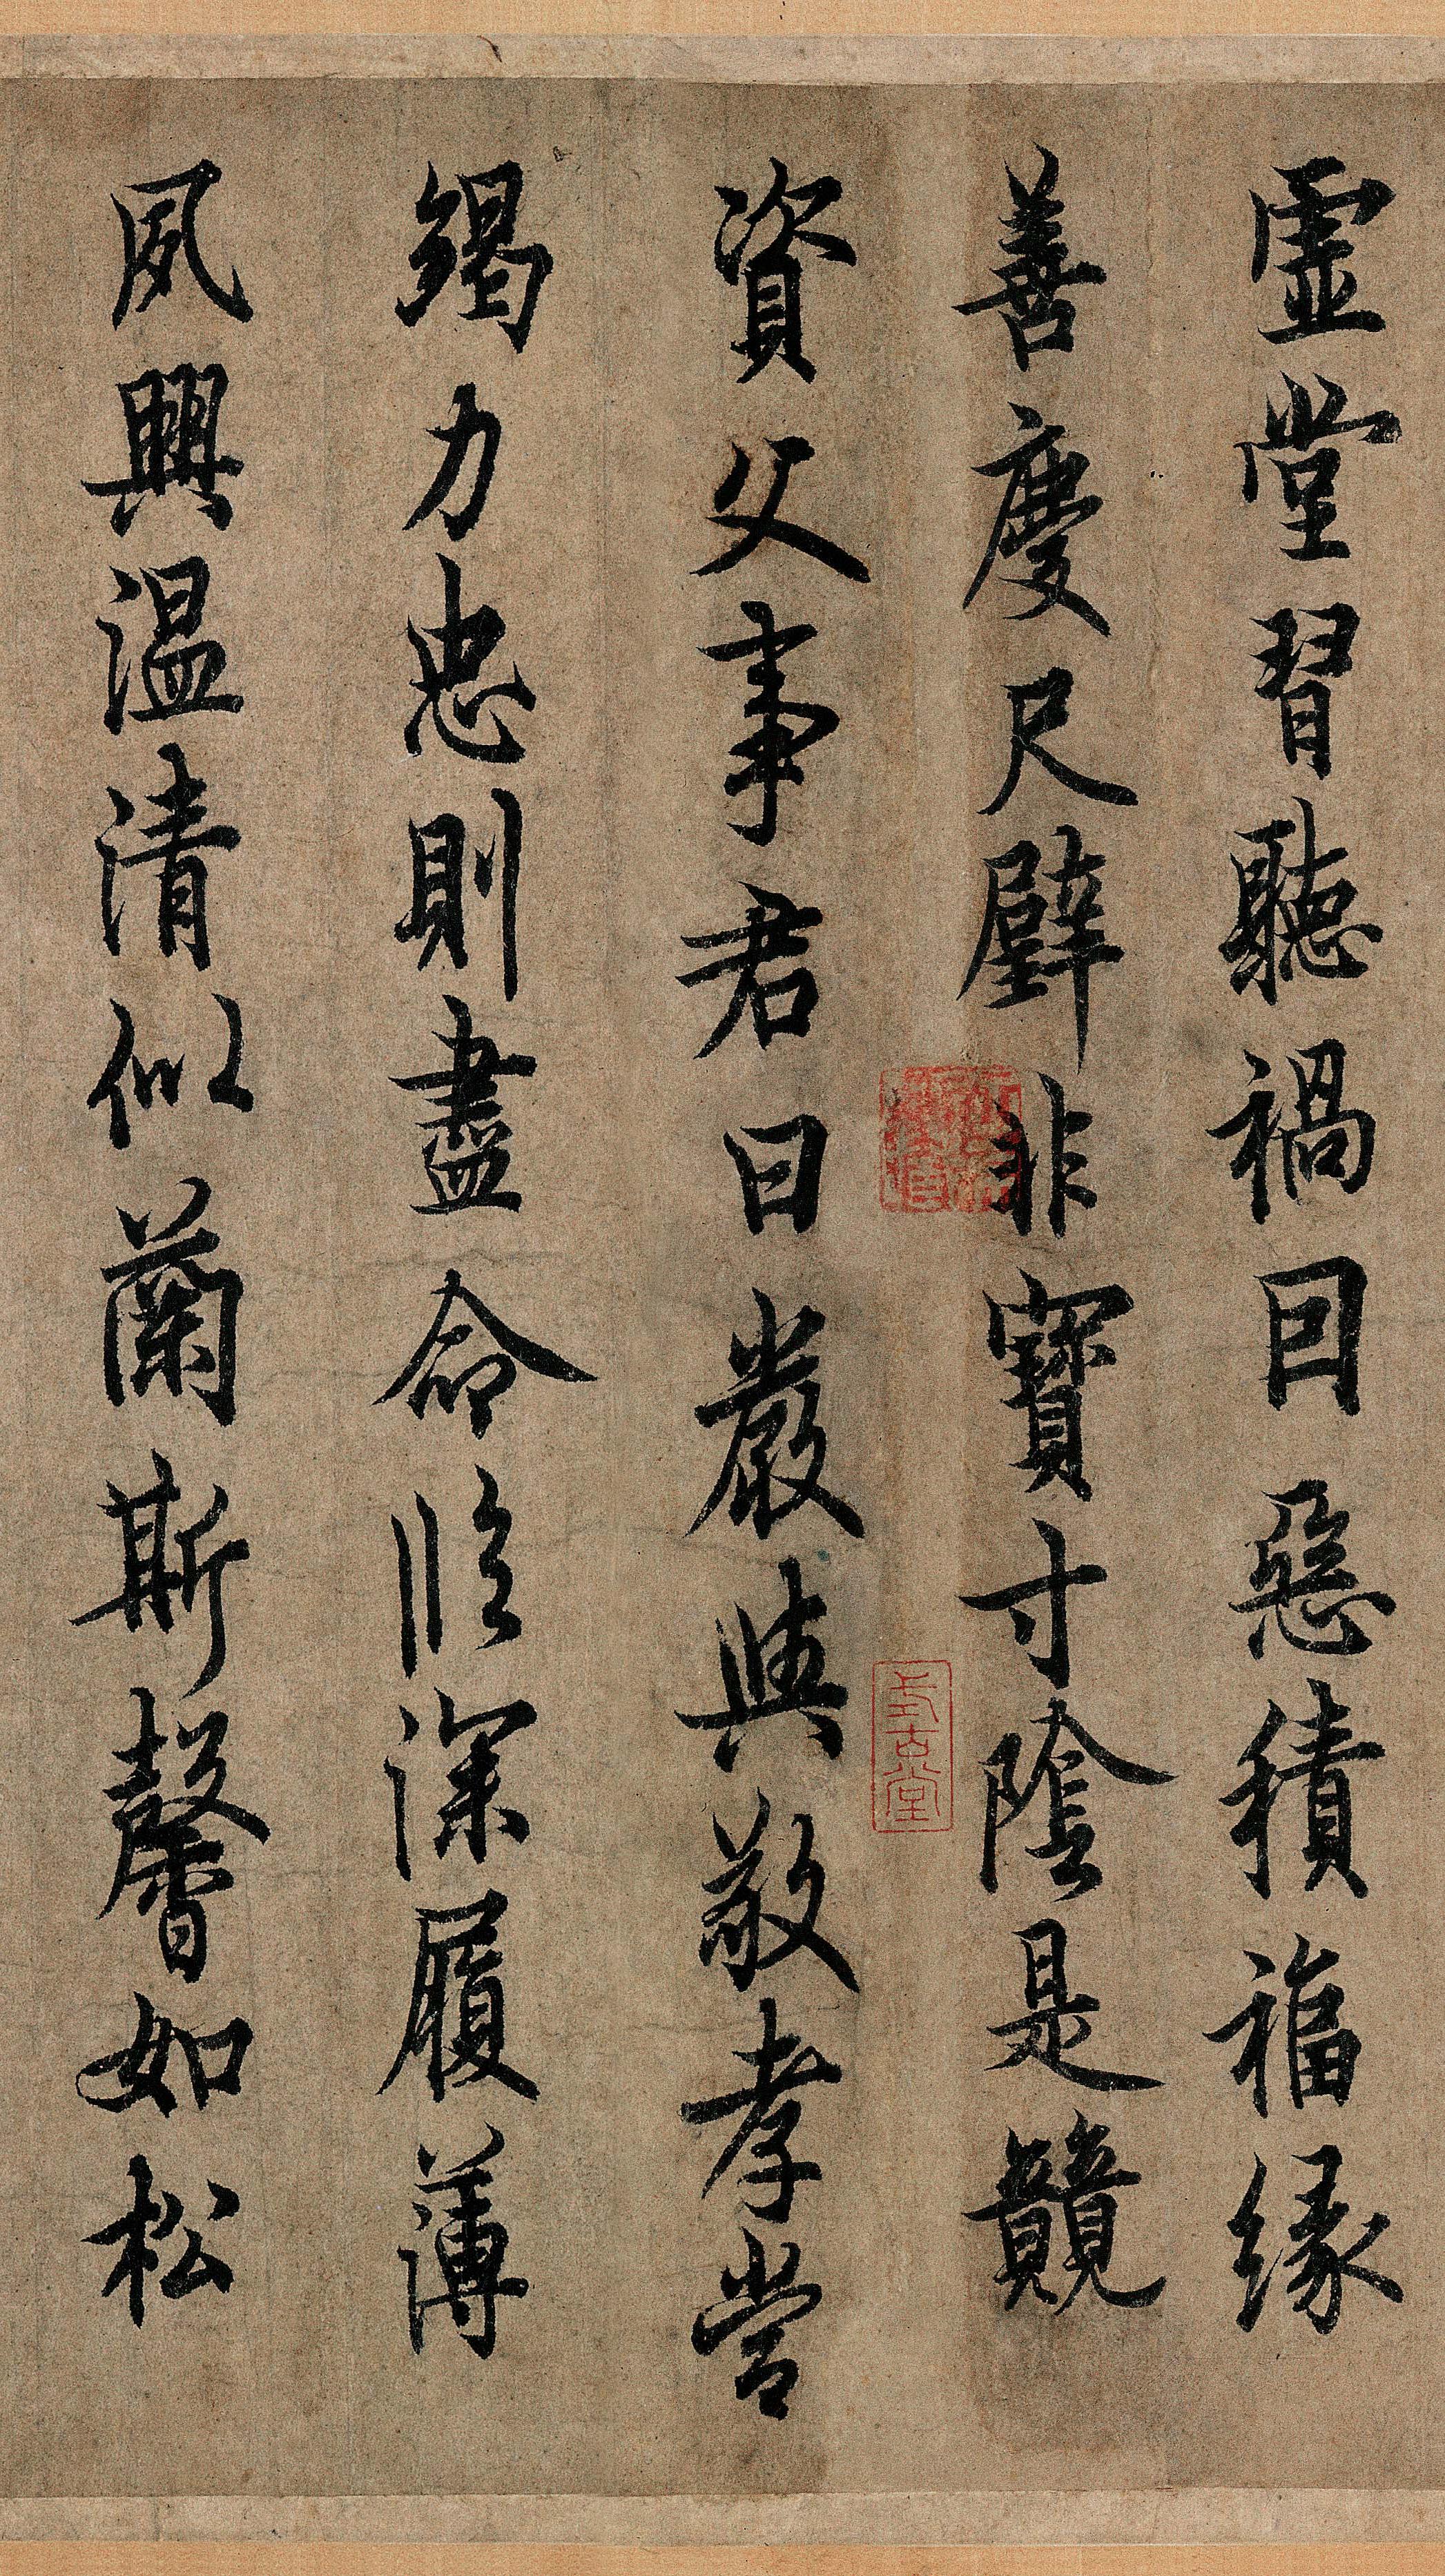 虛堂習聽禍因惡積福緣
善慶尺璧非寶寸陰是競
資父事君曰嚴與敬孝當
竭力忠則盡命臨深履薄
夙興温清似蘭斯馨如松
式古堂